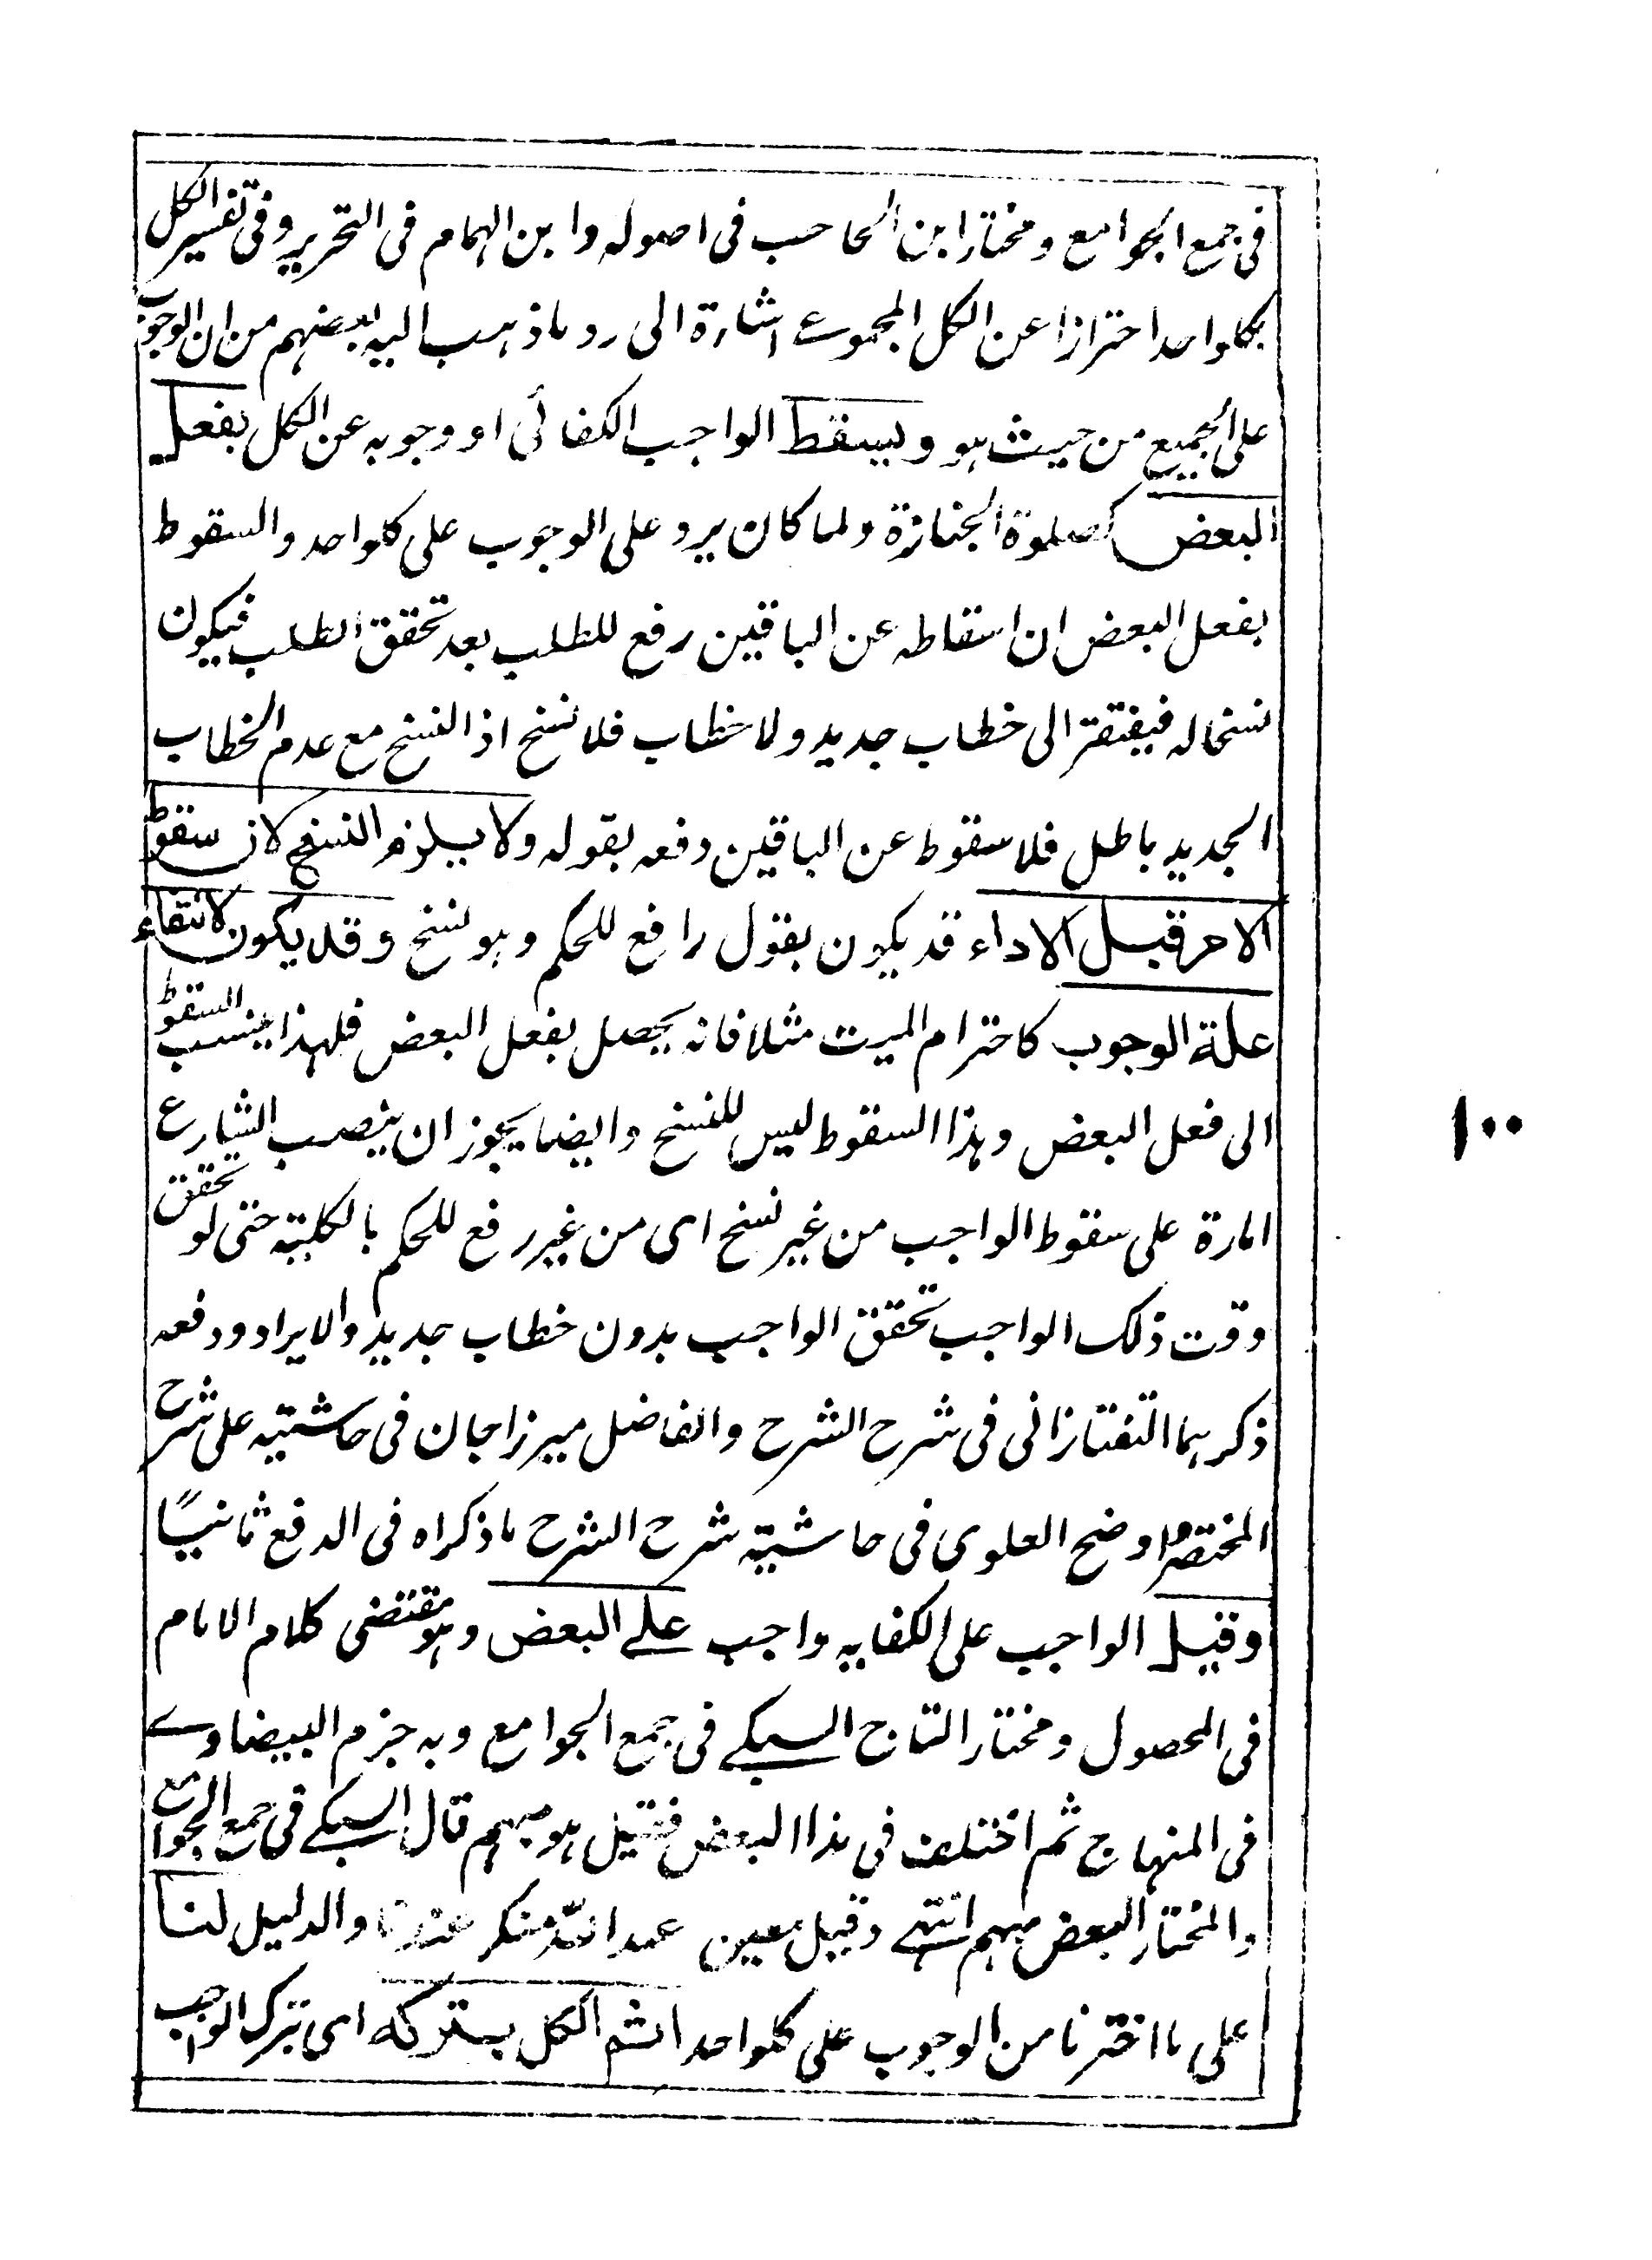 فى جمع الجوامع ومختار ابن الحاجب فى اصوله وابن الهمام فى التحرير وفى تفسير الكل
بكلواحد احترازا عن الكل المجموعے اشارة الى رد ما ذهب اليه بعضهم من ان الوجوب
على الجميع من حيث هو ويسقط الواجب الكفائى او وجوبه عن الكل بفعل
البعض كصلوة الجنازة ولما كان يرد على الوجوب على كلواحد والسقوط
بفعل البعض ان اسقاطه عن الباقين رفع للطلب بعد تحقق الطلب فيكون
نسخا له فيفتقر الى خطاب جديد ولا خطاب فلا نسخ اذ النسخ مع عدم الخطاب
الجديد باطل فلا سقوط عن الباقين دفعه بقوله ولا يلزم النسخ لان سقوط
الامر قبل الاداء قد يكون بقول رافع للحكم وهو نسخ وقد يكون لانتفاء
علة الوجوب كاحترام الميت مثلا فانه يحصل بفعل البعض فلهذا ينسب السقوط
الى فعل البعض وهذا السقوط ليس للنسخ وايضا يجوز ان ينصب الشارع
امارة على سقوط الواجب من غير نسخ اى من غير رفع للحكم بالكلية حتى لو تحقق
وقت ذلك الواجب تحقق الواجب بدون خطاب جديد والايراد ودفعه
ذكرهما التفتازانى فى شرح الشرح والفاضل ميرزاجان فى حاشيته على شرح
المختصر واوضح العلوى فى حاشية شرح الشرح ما ذكراه فى الدفع ثانيًا
وقيل الواجب على الكفايه واجب علے البعض وهو مقتضى كلام الامام
فى المحصول ومختار التاج السبكے فى جمع الجوامع وبه جزم البيضاوے
فى المنهاج ثم اختلف فى هذا البعض فقيل هو مبهم قال السبكے فى جمع الجوامع
والمختار البعض مبهم انتهے وقيل معين عند الله منكر عندنا والدليل لنا
على ما اخترنا من الوجوب على كلواحد اثم الكل بتركه اى بترك الواجب
١٠٠